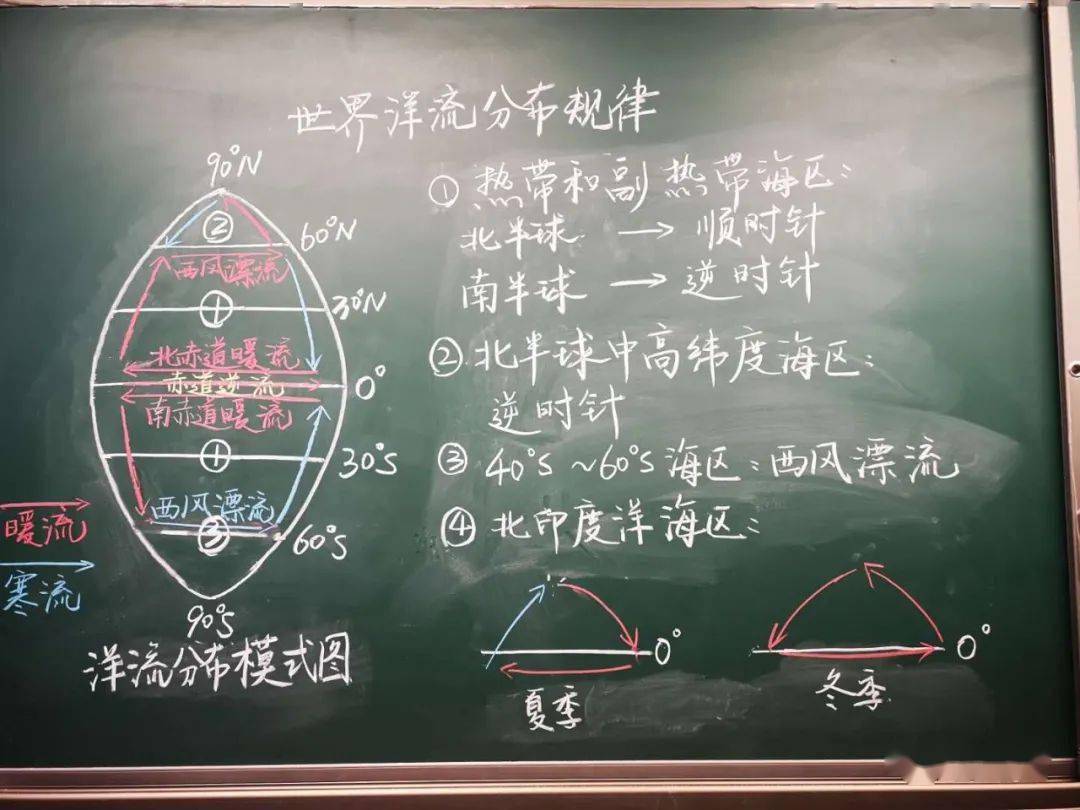 世界洋流分布规律
90°N
②
60°N
西风漂流
①
30°N
北赤道暖流
赤道逆流
0°
南赤道暖流
①
30°S
西风漂流
③
60°S
90°S
暖流
寒流
洋流分布模式图
①热带和副热带海区：
北半球 → 顺时针
南半球 → 逆时针
②北半球中高纬度海区：
逆时针
③40°S~60°S海区：西风漂流
④北印度洋海区：
0°
夏季
0°
冬季